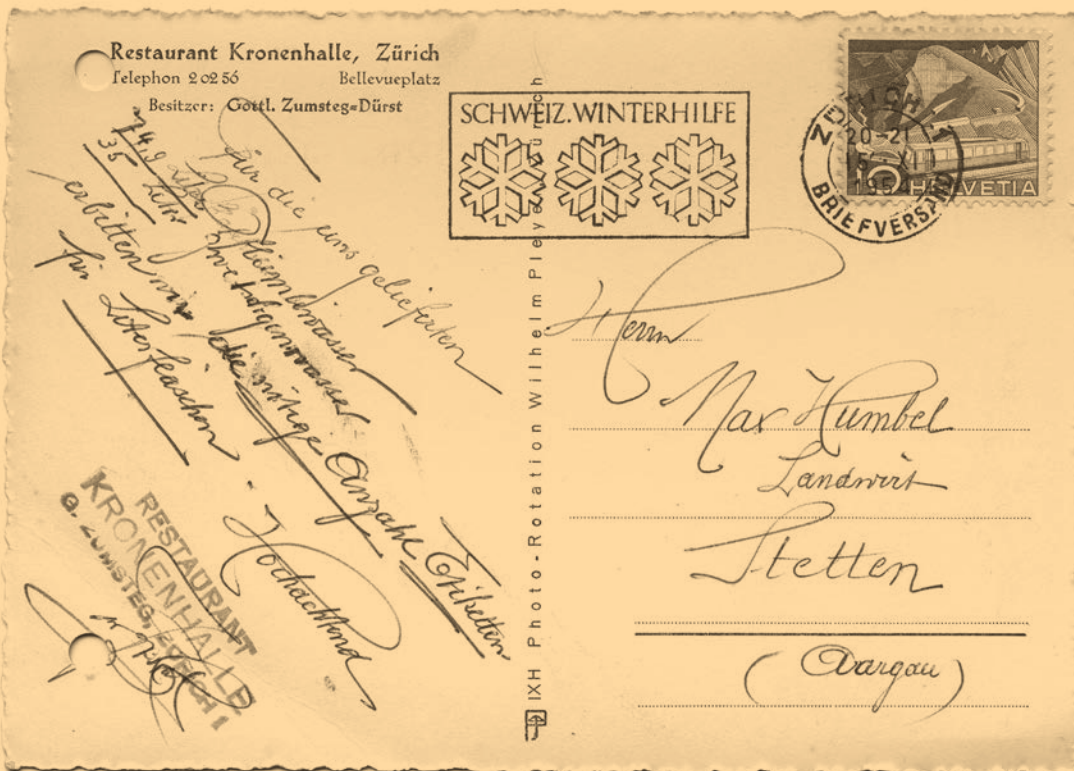 Restaurant Kronenhalle, Zürich
Telephon 2 02 56 Bellevueplatz
Besitzer: Gottl. Zumsteg=Dürst
für die uns gelieferten
74,9 Liter Pfliemliwasser
35 Liter Zwetschgenwasser
erbitten wir die nötige Anzahl Etiketten
für Literflaschen.
Hochachtend
RESTAURANT
KRONENHALLE
G. ZUMSTEG, ZÜRICH 1
IXH Photo-Rotation Wilhelm Pleyer, Zürich
SCHWEIZ. WINTERHILFE
ZÜRICH 1
20-21
15. XI
1954
BRIEFVERSAND
10 HELVETIA
Herrn
Max Humbel
Landwirt
Stetten
(Aargau)